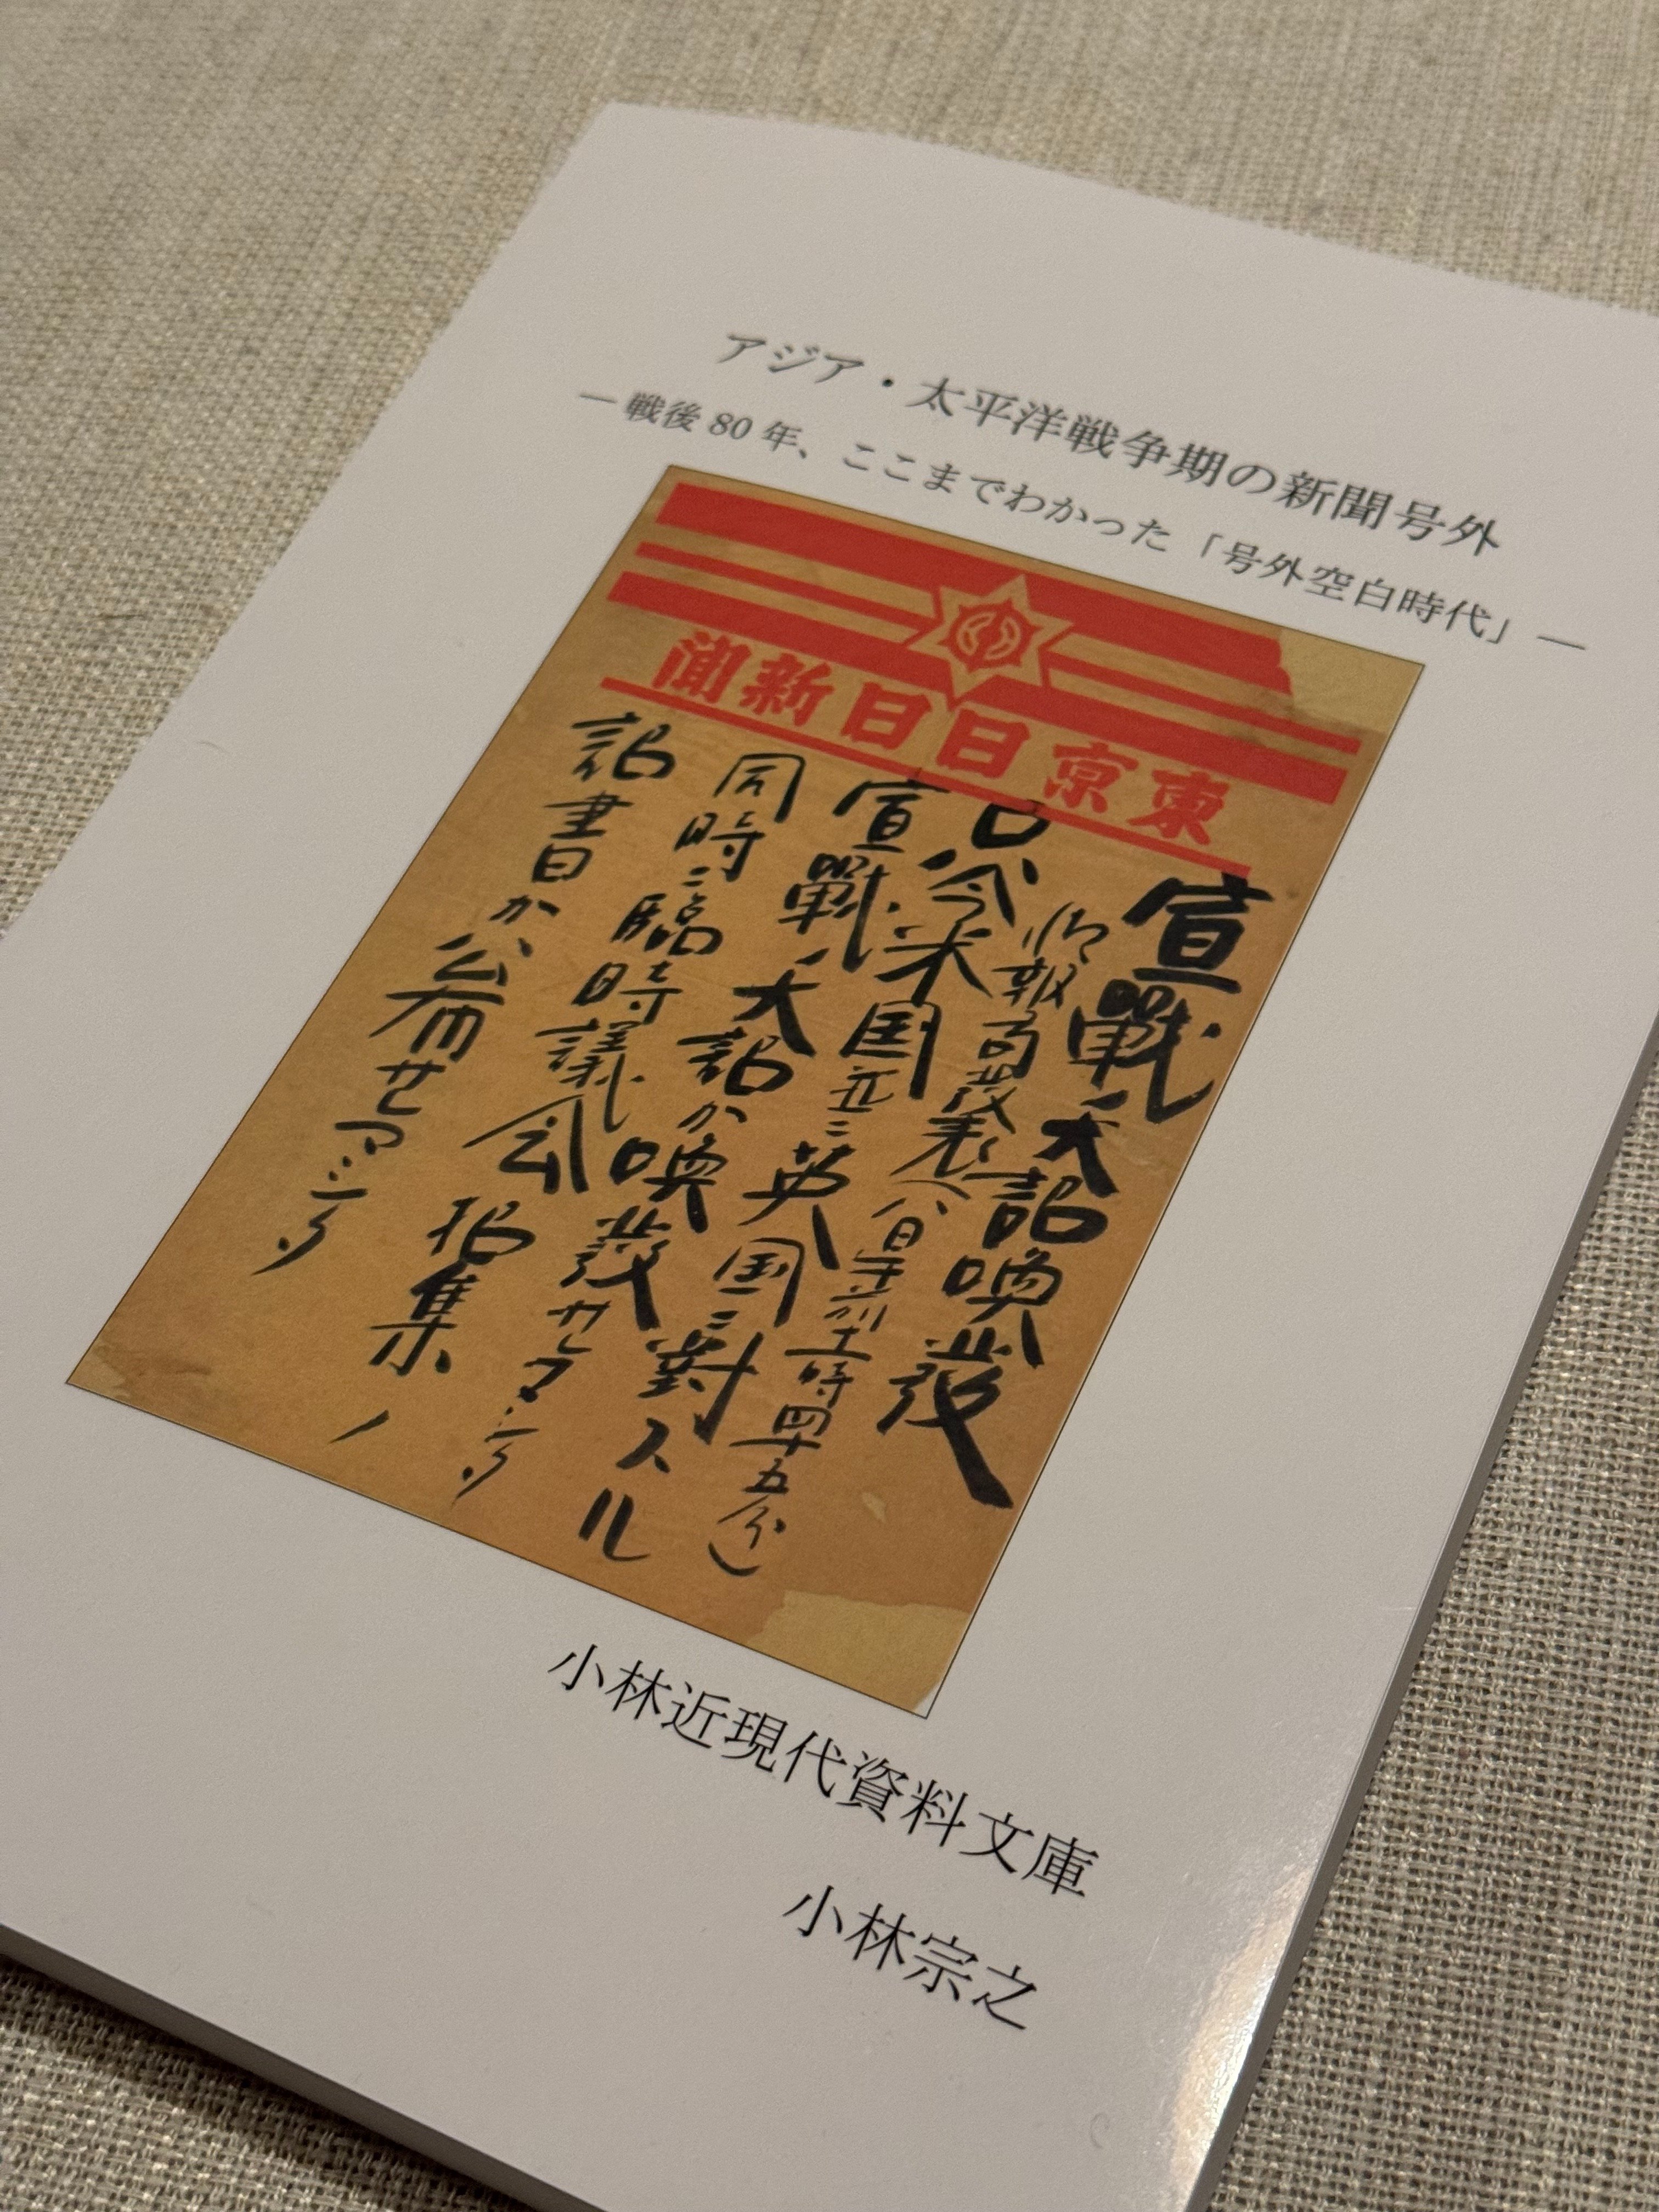 アジア・太平洋戦争期の新聞号外
― 戦後 80 年、ここまでわかった「号外空白時代」―
東京日日新聞
宣戰ノ大詔喚發
情報局発表(八日午前十一時四十五分)
只今米国並ニ英国ニ對スル
宣戰ノ大詔か喚發サレマシタ
同時ニ臨時議会招集ノ
詔書か公布サレマシタ
小林近現代資料文庫
小林宗之